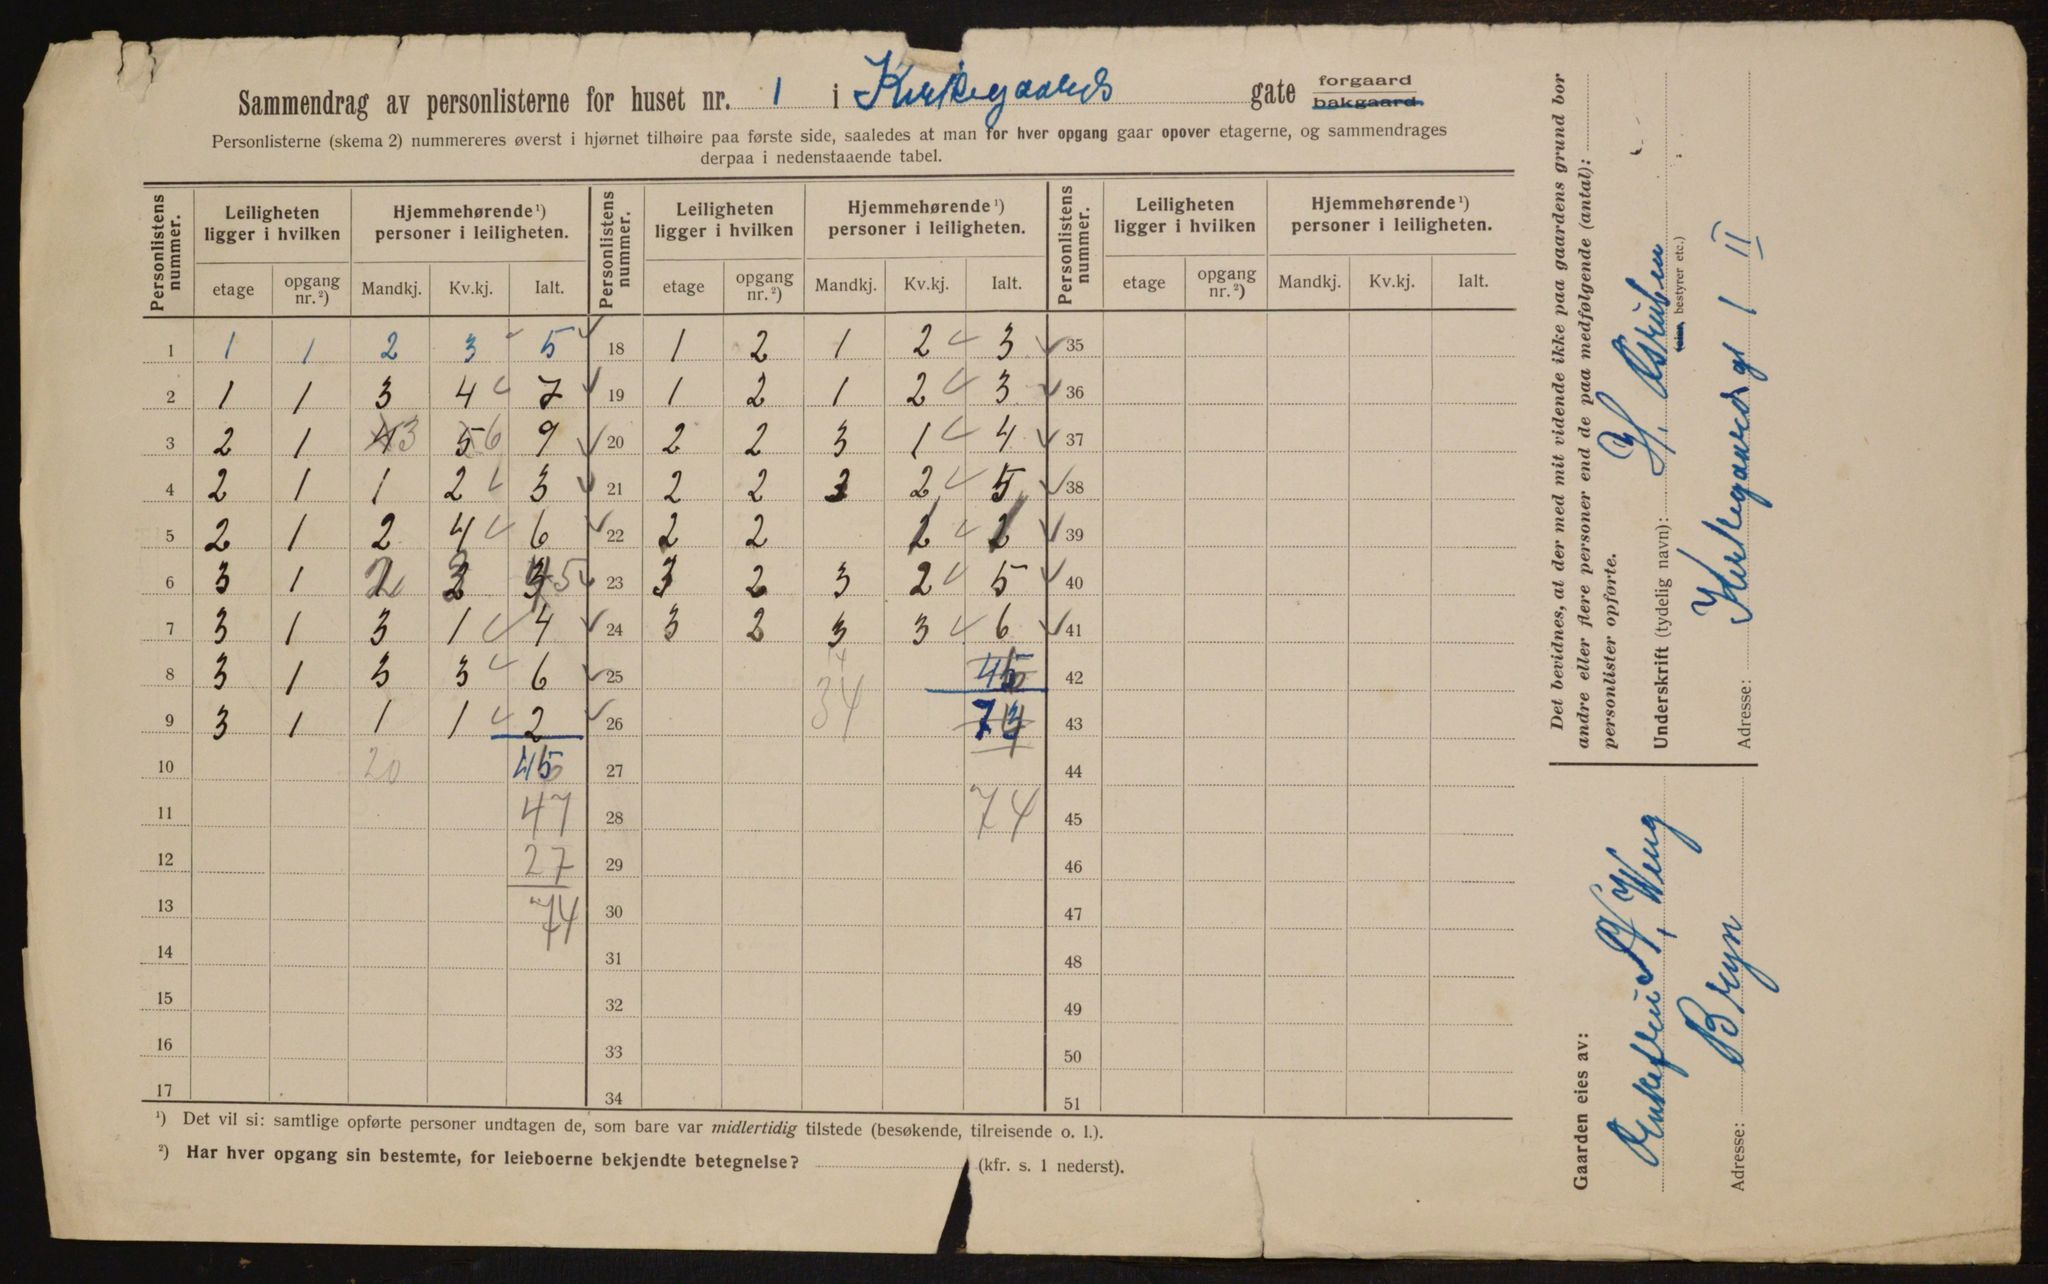 Sammendrag av personlisterne for huset nr. 1 i Kirkegaards gate forgaard bakgaard.
Personlisterne (skema 2) nummereres øverst i hjørnet tilhøire paa første side, saaledes at man for hver opgang gaar opover etagerne, og sammendrages
derpaa i nedenstaaende tabel.
Personlistens nummer. Leiligheten ligger i hvilken Hjemmehørende ¹) personer i leiligheten. Personlistens nummer. Leiligheten ligger i hvilken Hjemmehørende ¹) personer i leiligheten. Personlistens nummer. Leiligheten ligger i hvilken Hjemmehørende ¹) personer i leiligheten.
etage opgang nr. ²) Mandkj. Kv.kj. Ialt. etage opgang nr. ²) Mandkj. Kv.kj. Ialt. etage opgang nr. ²) Mandkj. Kv.kj. Ialt.
1 1 1 2 3 5 18 1 2 1 2 3 35
2 1 1 3 4 7 19 1 2 1 2 3 36
3 2 1 4 3 5 6 9 20 2 2 3 1 4 37
4 2 1 1 2 3 21 2 2 3 2 5 38
5 2 1 2 4 6 22 2 2 39
6 3 1 2 5 23 3 2 3 2 5 40
7 3 1 3 1 4 24 3 2 3 3 6 41
8 3 1 3 3 6 25 45 42
9 3 1 1 1 2 26 34 73 43
10 20 45 27 44
11 47 28 74 45
12 27 29 46
13 74 30 47
14 31 48
15 32 49
16 33 50
17 34 51
¹) Det vil si: samtlige opførte personer undtagen de, som bare var midlertidig tilstede (besøkende, tilreisende o. l.).
²) Har hver opgang sin bestemte, for leieboerne bekjendte betegnelse? (kfr. s. 1 nederst).
Det bevidnes, at der med mit vidende ikke paa gaardens grund bor
andre eller flere personer end de paa medfølgende (antal):
personlister opførte.
Underskrift (tydelig navn): H.
bestyrer etc.)
Adresse: Kirkegaardsgt 1 II
Gaarden eies av:
Enkefru A, Weng
Adresse: Bryn